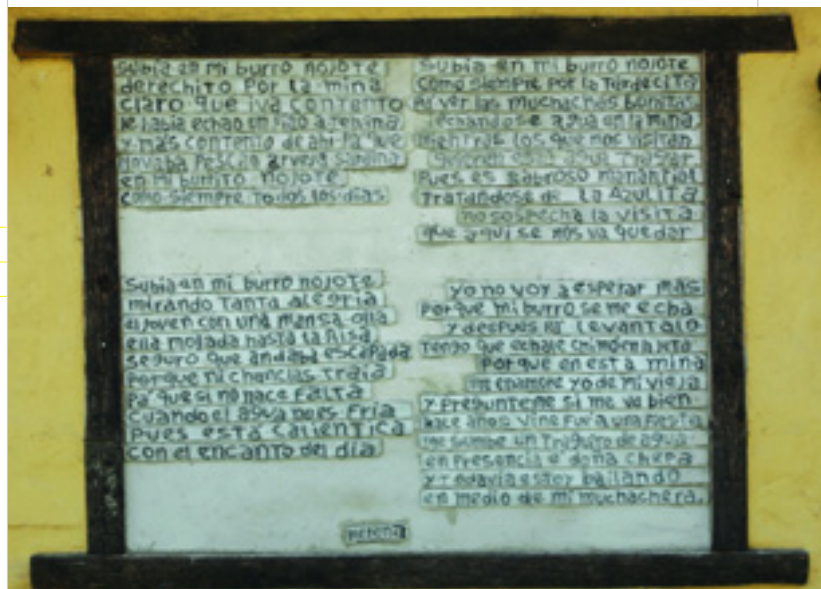 Subía en mi burro nojote
derechito por la mina
claro que iva contento
le había echao un
y más contento de ahí la que
en mi burrito nojote
como siempre todos los días
Subía en mi burro nojote
mirando tanta alegría
el joven con una mansa olla
ella mojada hasta la risa
seguro que andaba escapada
porque ni chanclas traía
pa' que si no hace falta
cuando el agua no es fría
pues está calientica
con el encanto del día
Subía en mi burro nojote
como siempre por la tardecita
al ver las muchachas bonitas
echándose agua en la mina
mientras los que nos visitan
quieren esta agua
pues es sabroso manantial
tratándose de la Azulita
no sospecha la visita
que aquí se nos va quedar
yo no voy a esperar más
porque mi burro se me echa
y después pa' levantalo
tengo que echale
porque en esta mina
me enamoré yo de mi vieja
y pregunteme si me va bien
hace años vine pur a una fiesta
me sumbe un de agua
en presencia e' doña chepa
y todavía estoy bailando
en medio de mi muchachera.